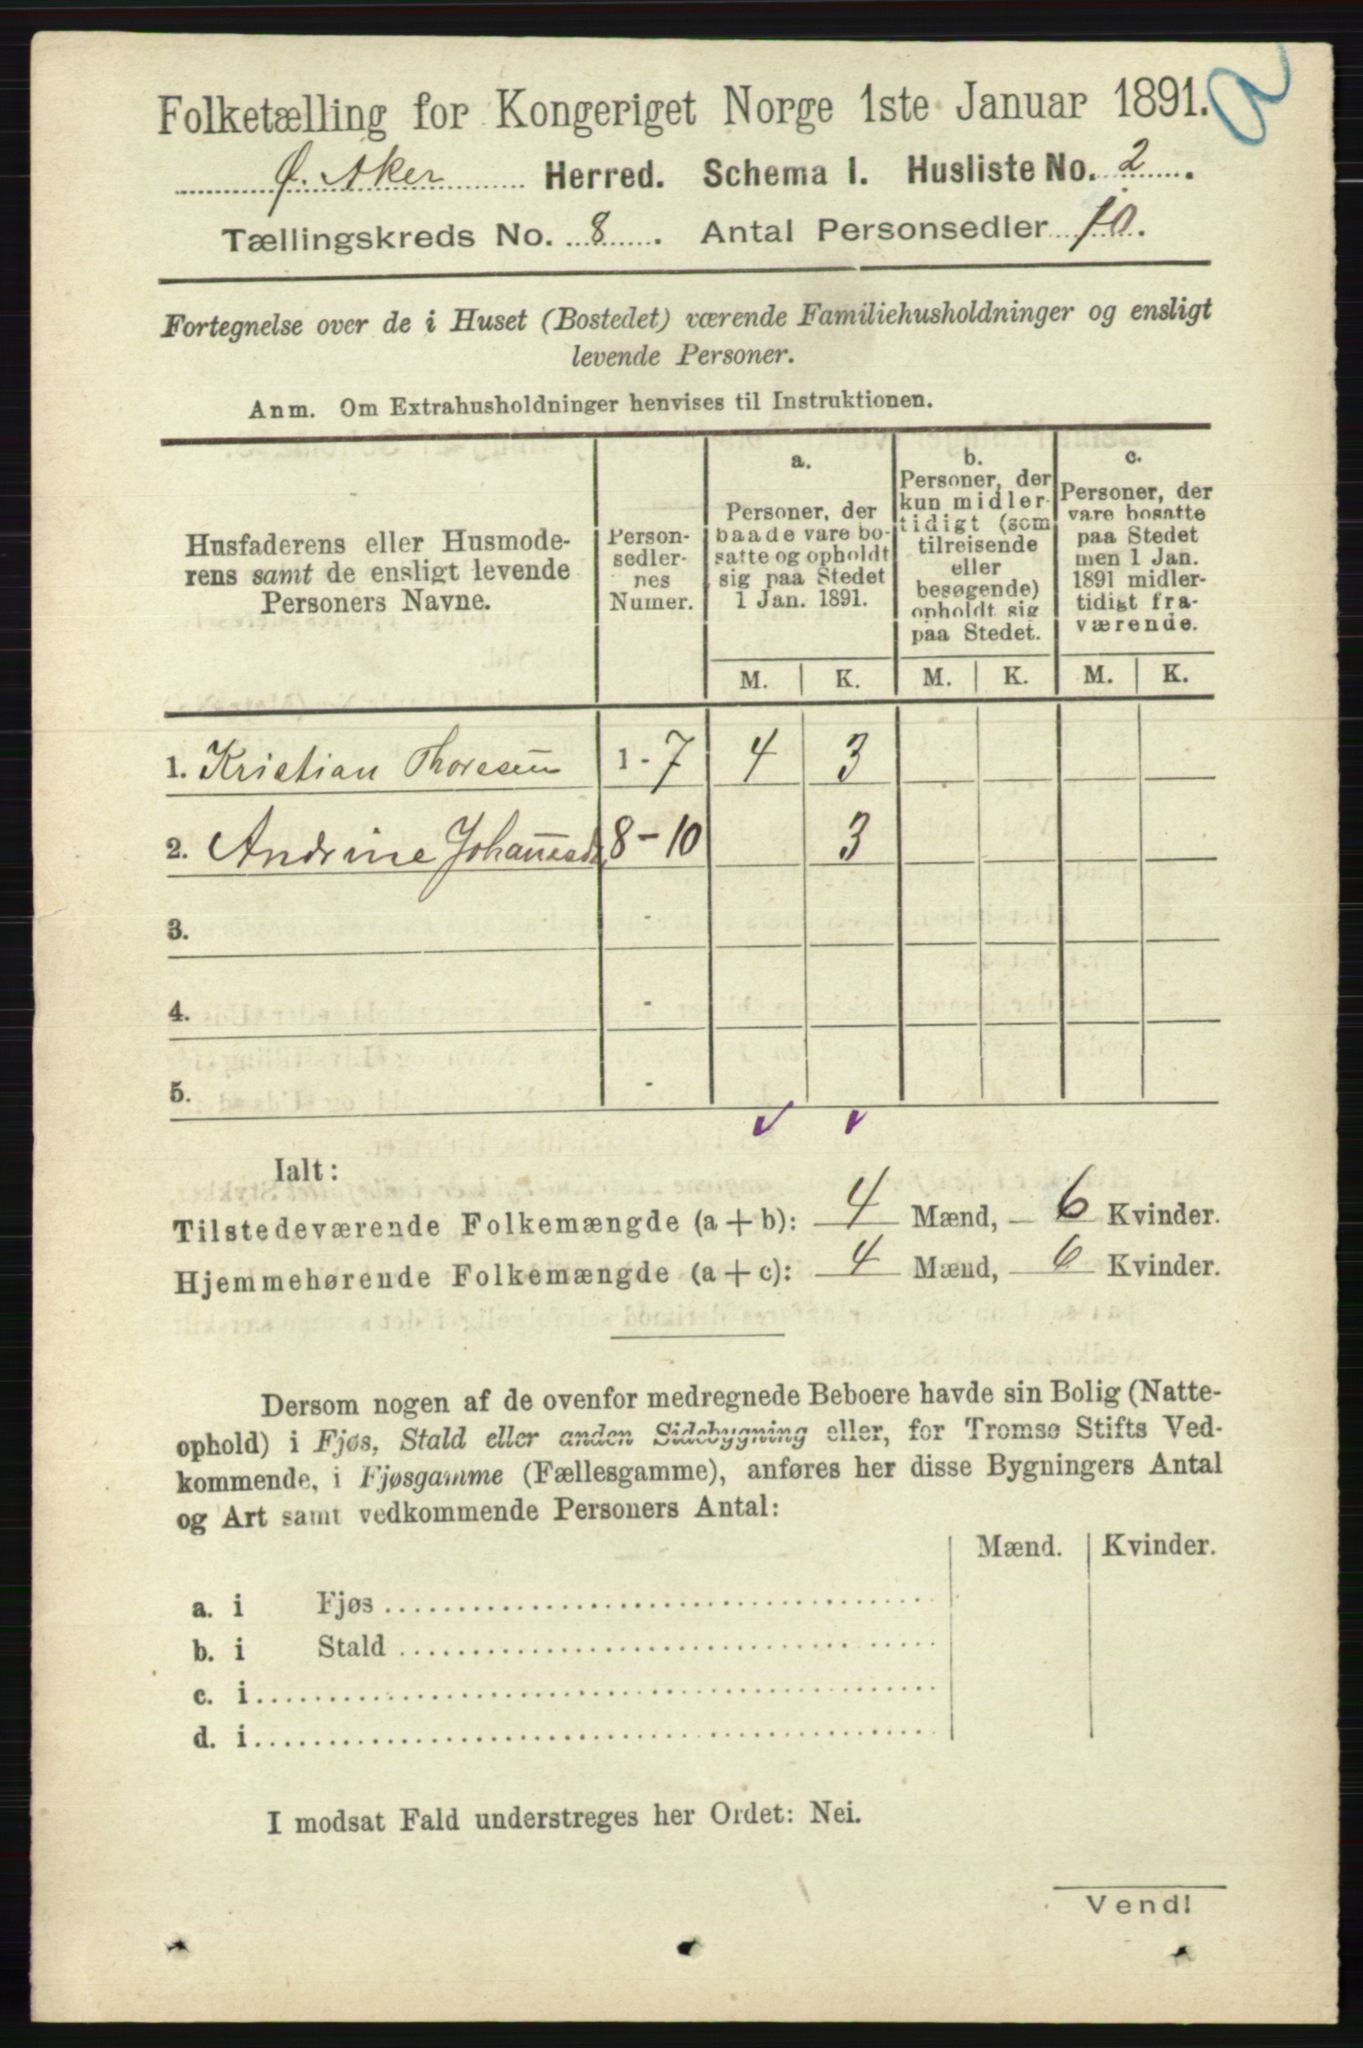 Folketælling for Kongeriget Norge 1ste Januar 1891.
Ø. Aker Herred. Schema I. Husliste No. 2.
Tællingskreds No. 8. Antal Personsedler 10.
Fortegnelse over de i Huset (Bostedet) værende Familiehusholdninger og ensligt
levende Personer.
Anm. Om Extrahusholdninger henvises til Instruktionen.
Husfaderens eller Husmode-
rens samt de ensligt levende
Personers Navne.
Person-
sedler-
nes
Numer.
a.
Personer, der
baade vare bo-
satte og opholdt
sig paa Stedet
1 Jan. 1891.
b.
Personer, der
kun midler-
tidigt (som
tilreisende
eller
besøgende)
opholdt sig
paa Stedet.
c.
Personer, der
vare bosatte
paa Stedet
men 1 Jan.
1891 midler-
tidigt fra-
værende.
M. K. M. K. M. K.
1. Kristian Thoresen 1 - 7 4 3
2. Andrine Johannesd. 8 - 10 3
3. -
4. -
5. -
Ialt:
Tilstedeværende Folkemængde (a + b): 4 Mænd, 6 Kvinder.
Hjemmehørende Folkemængde (a + c): 4 Mænd, 6 Kvinder.
Dersom nogen af de ovenfor medregnede Beboere havde sin Bolig (Natte-
ophold) i Fjøs, Stald eller anden Sidebygning eller, for Tromsø Stifts Ved-
kommende, i Fjøsgamme (Fællesgamme), anføres her disse Bygningers Antal
og Art samt vedkommende Personers Antal:
Mænd. Kvinder.
a. i Fjøs
b. i Stald
c. i
d. i
I modsat Fald understreges her Ordet: Nei.
Vend!